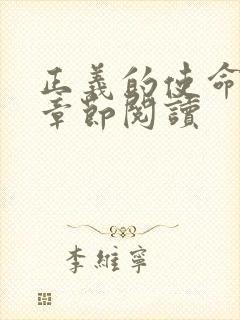 正義的使命
章節閱讀
李維寧